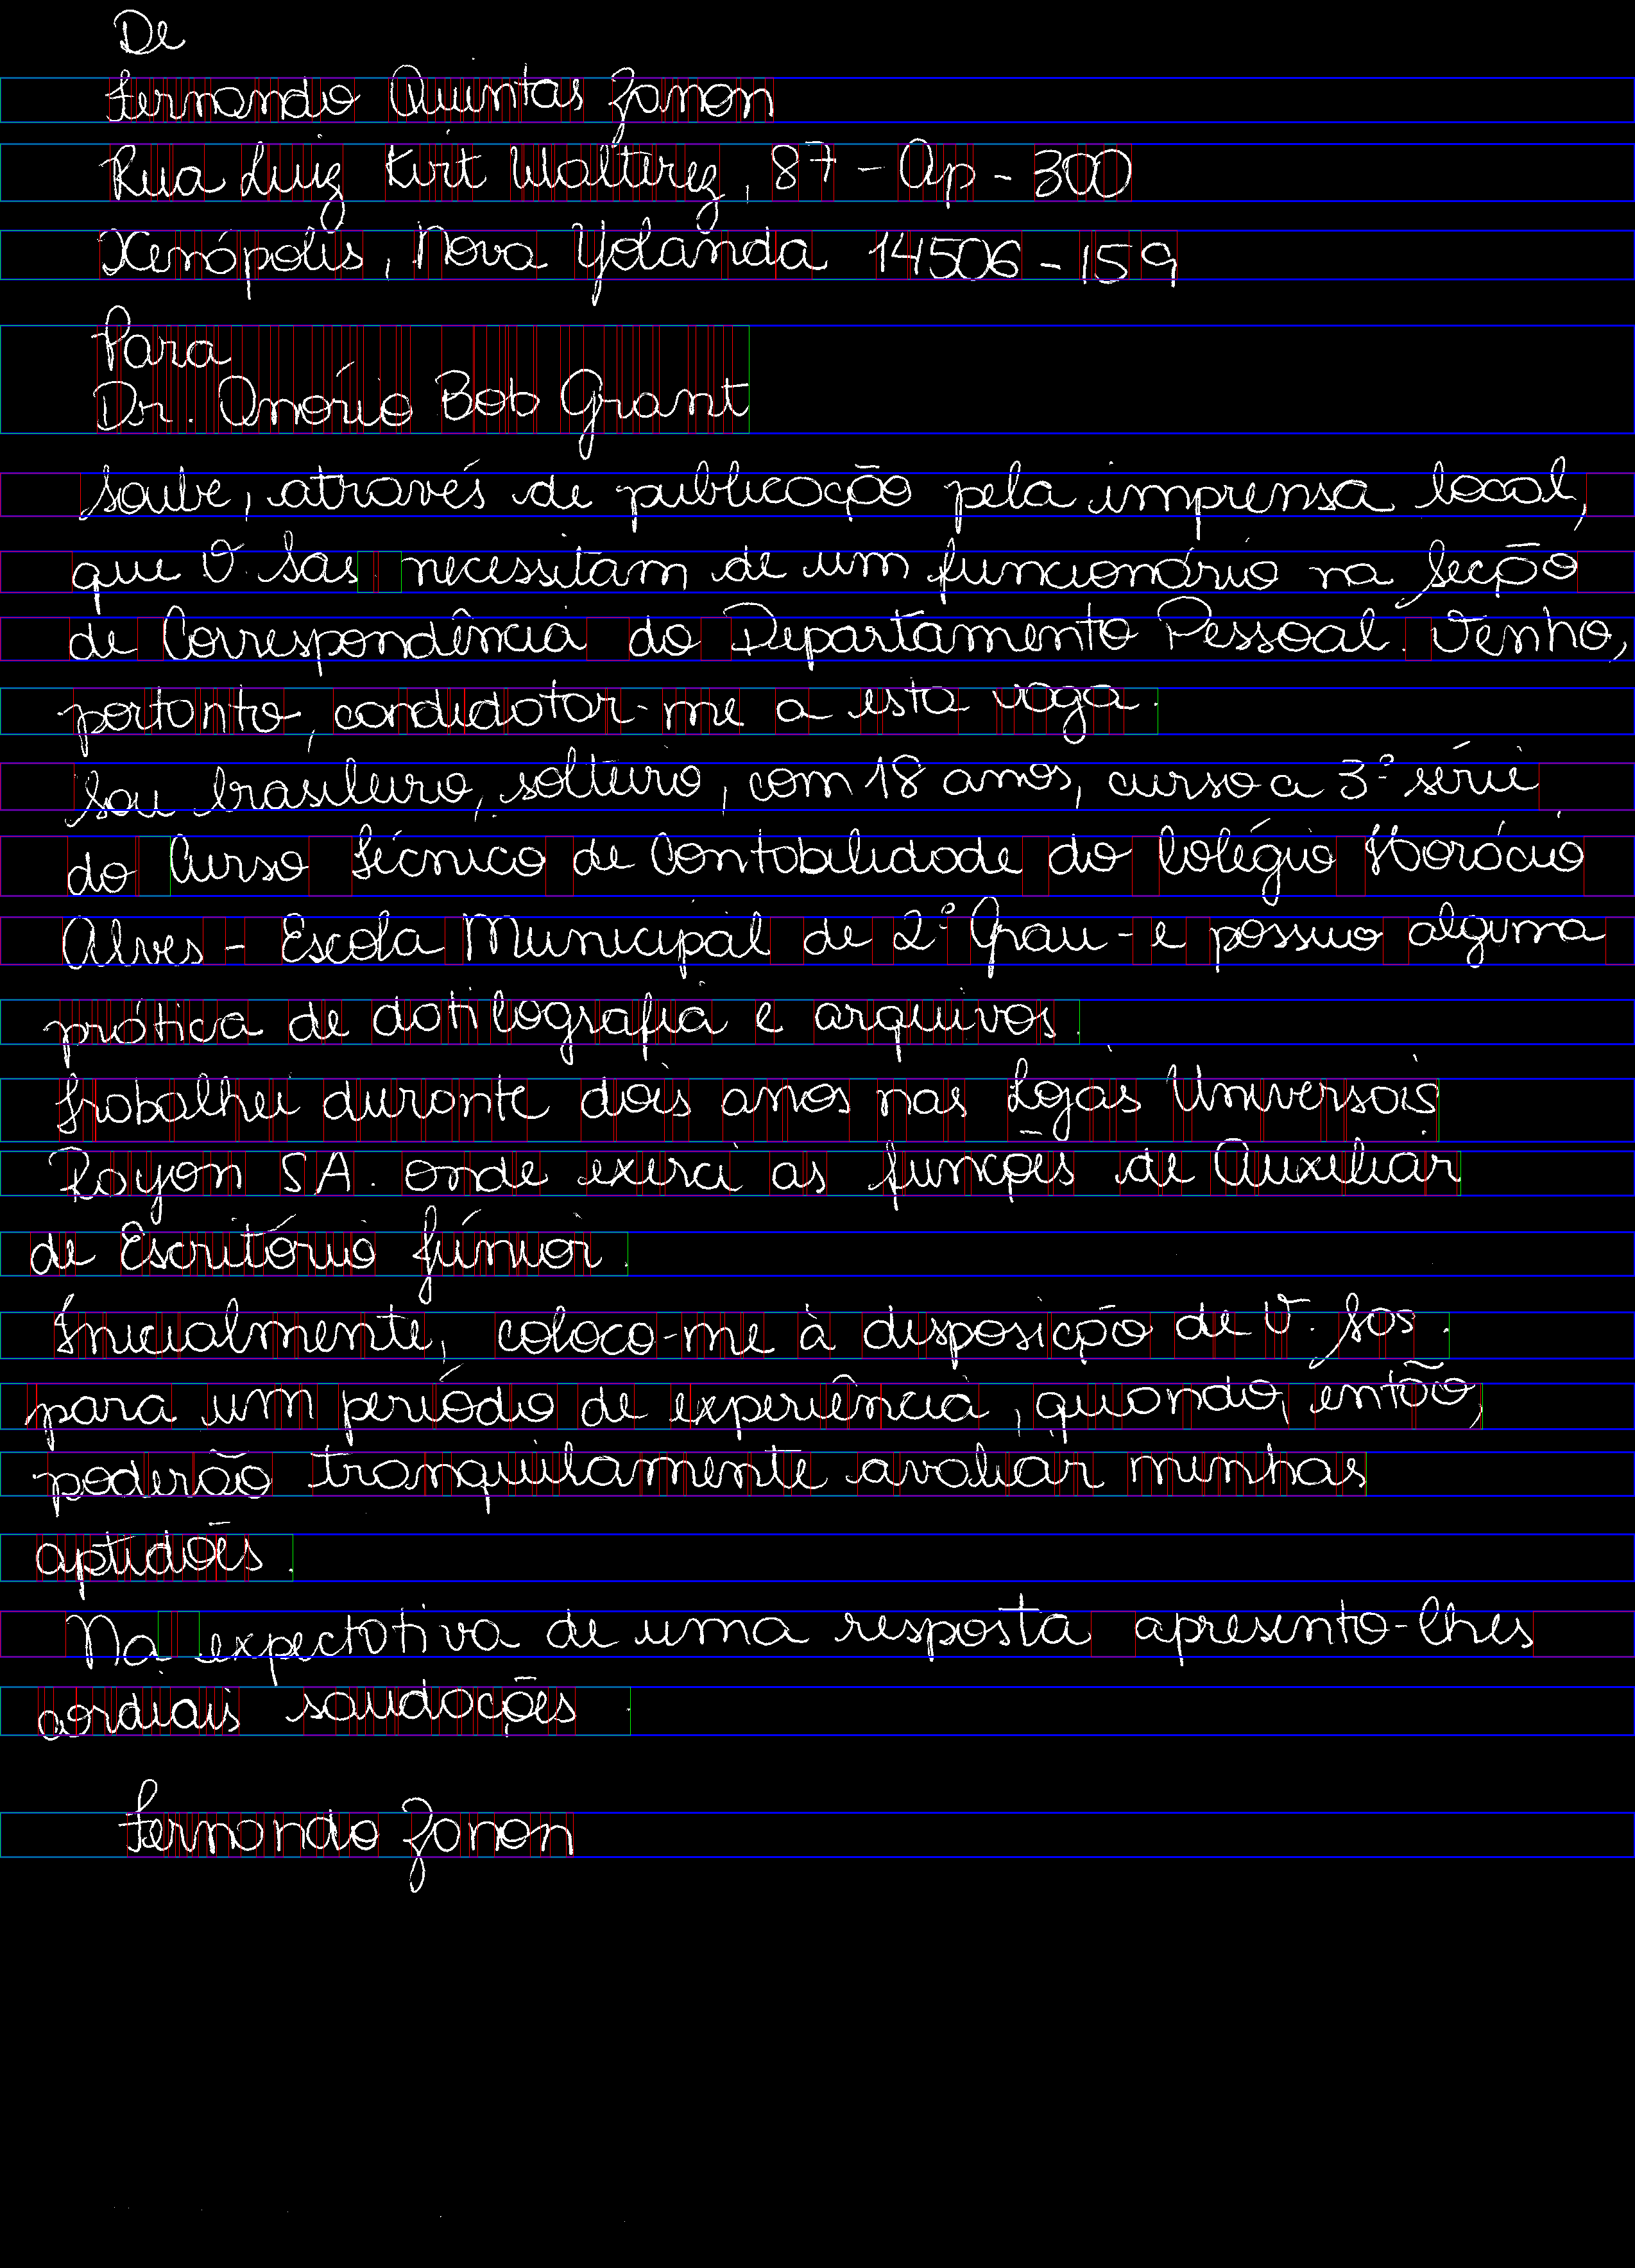 De
Fernando Quintas Zanon
Rua Luiz Kirt Walterez, 87 - Ap - 300
Xenópolis, Nova Yolanda 14506-159
Para
Dr. Onório Bob Grant
Soube, através de publicação pela imprensa local,
que V. Sas necessitam de um funcionário na Secção
de Correspondência do Departamento Pessoal. Venho,
portanto, candidatar-me a esta vaga.
Sou brasileiro, solteiro, com 18 anos, curso a 3ª série
do Curso Técnico de Contabilidade do Colégio Horácio
Alves - Escola Municipal de 2º Grau - e possuo alguma
prática de datilografia e arquivos.
Trabalhei durante dois anos nas Lojas Universais
Rayon S.A. onde exerci as funções de Auxiliar
de Escritório Júnior.
Inicialmente, coloco-me à disposição de V. Sas.
para um período de experiência, quando, então,
poderão tranquilamente avaliar minhas
aptidões.
Na expectativa de uma resposta apresento-lhes
cordiais saudações.
Fernando Zanon